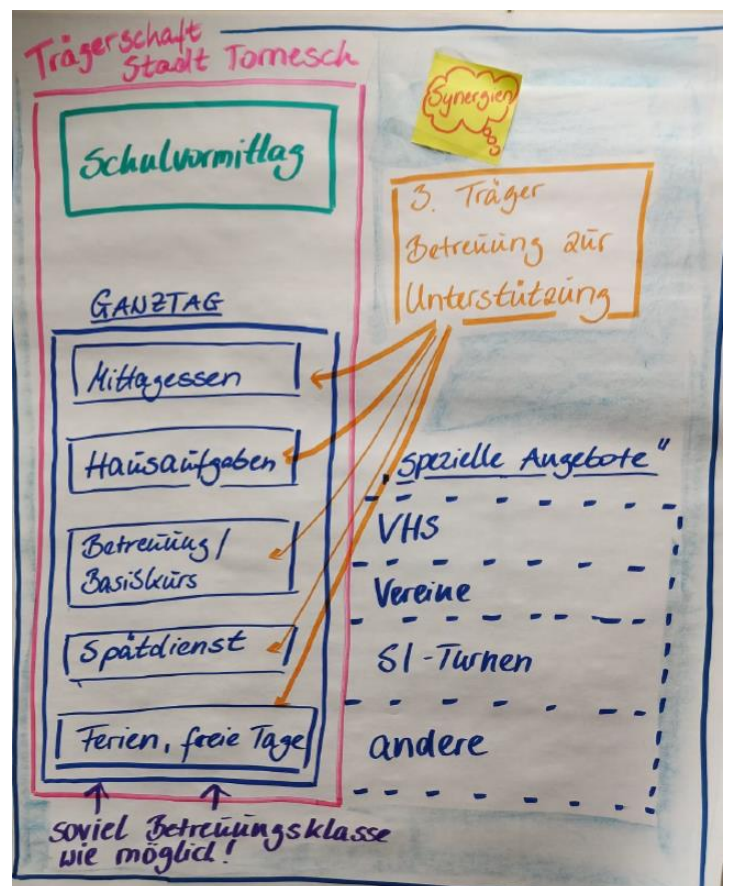 Trägerschaft
Stadt Tornesch
Synergien
Schulvormittag
3. Träger
Betreuung zur
Unterstützung
GANZTAG
Mittagessen
Hausaufgaben
Betreuung /
Basiskurs
Spätdienst
Ferien, freie Tage
„spezielle Angebote"
VHS
Vereine
SI-Turnen
andere
soviel Betreuungsklasse
wie möglich!